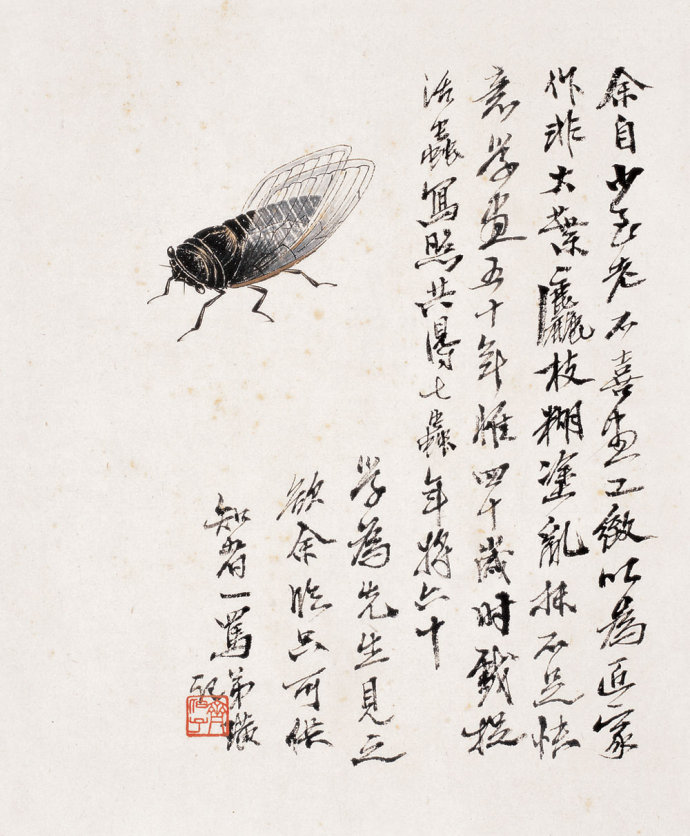 余自少至老不喜画工緻以為匠家
作非大葉麤枝糊塗亂抹不足快
意學畫五十年惟四十歲時戲捉
活蟲寫照共得七蟲年將六十
學為先生見之
欲余臨只可供
知者一罵弟璜
記